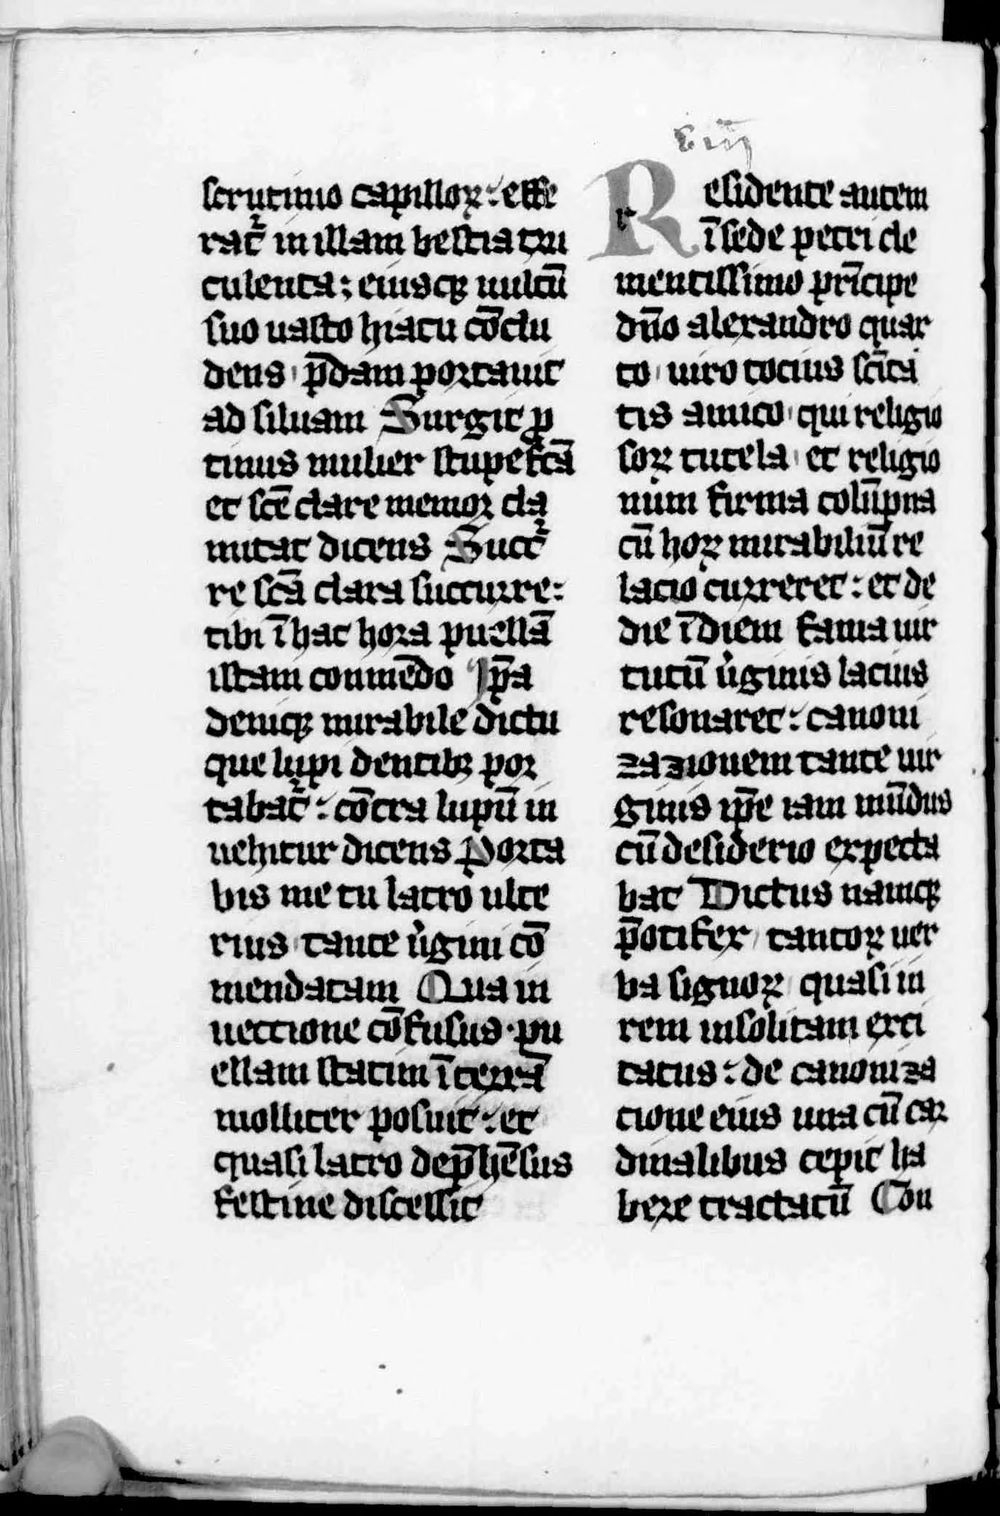 scrutinio capilloꝝ : effe
rat̄ in illam bestia tru
culenta ; eiusqꝫ uultū
suo uasto hiatu cōclu
dens , p̄dam portauit
ad siluam Surgit ꝓ
tinus mulier stupef̄cā
et scē clare memoꝝ cla
mitat dicens Succˀ
re scā clara succurre :
tibi ī hac hora puellā
istam conmēdo Ip̄a
deniqꝫ mirabile dictu
que lupi dentibꝫ por
tabat̄ : cōtra lupū in
uehitur dicens Porta
bis me tu latro ulte
rius tante u̇gini cō
mendatam Qua in
uectione cōfusus · pu
ellam statim ī terrā
molliter posuit : et
quasi latro dep̄hēsus
festine discessit
viij
Residente autem
ī sede petri cle
mentissimo prīcipe
dn̄o alexandro quar
to , uiro tocius scīta
tis amico , qui religio
soꝝ tutela , et religio
num firma colūpna
cū hoꝝ mirabiliū re
lacio curreret : et de
die ī diem fama uir
tutū u̇ginis lacius
resonaret : canoni
zazionem tante uir
ginis ip̄e iam mūdus
cū desiderio expecta
bat Dictus namqꝫ
p̄otifex , tantoꝝ uer
ba signoꝝ , quasi in
rem insolitam exci
tatus : de canoniza
cione eius una cū car
dinalibus cepit ha
bere tractatū Con